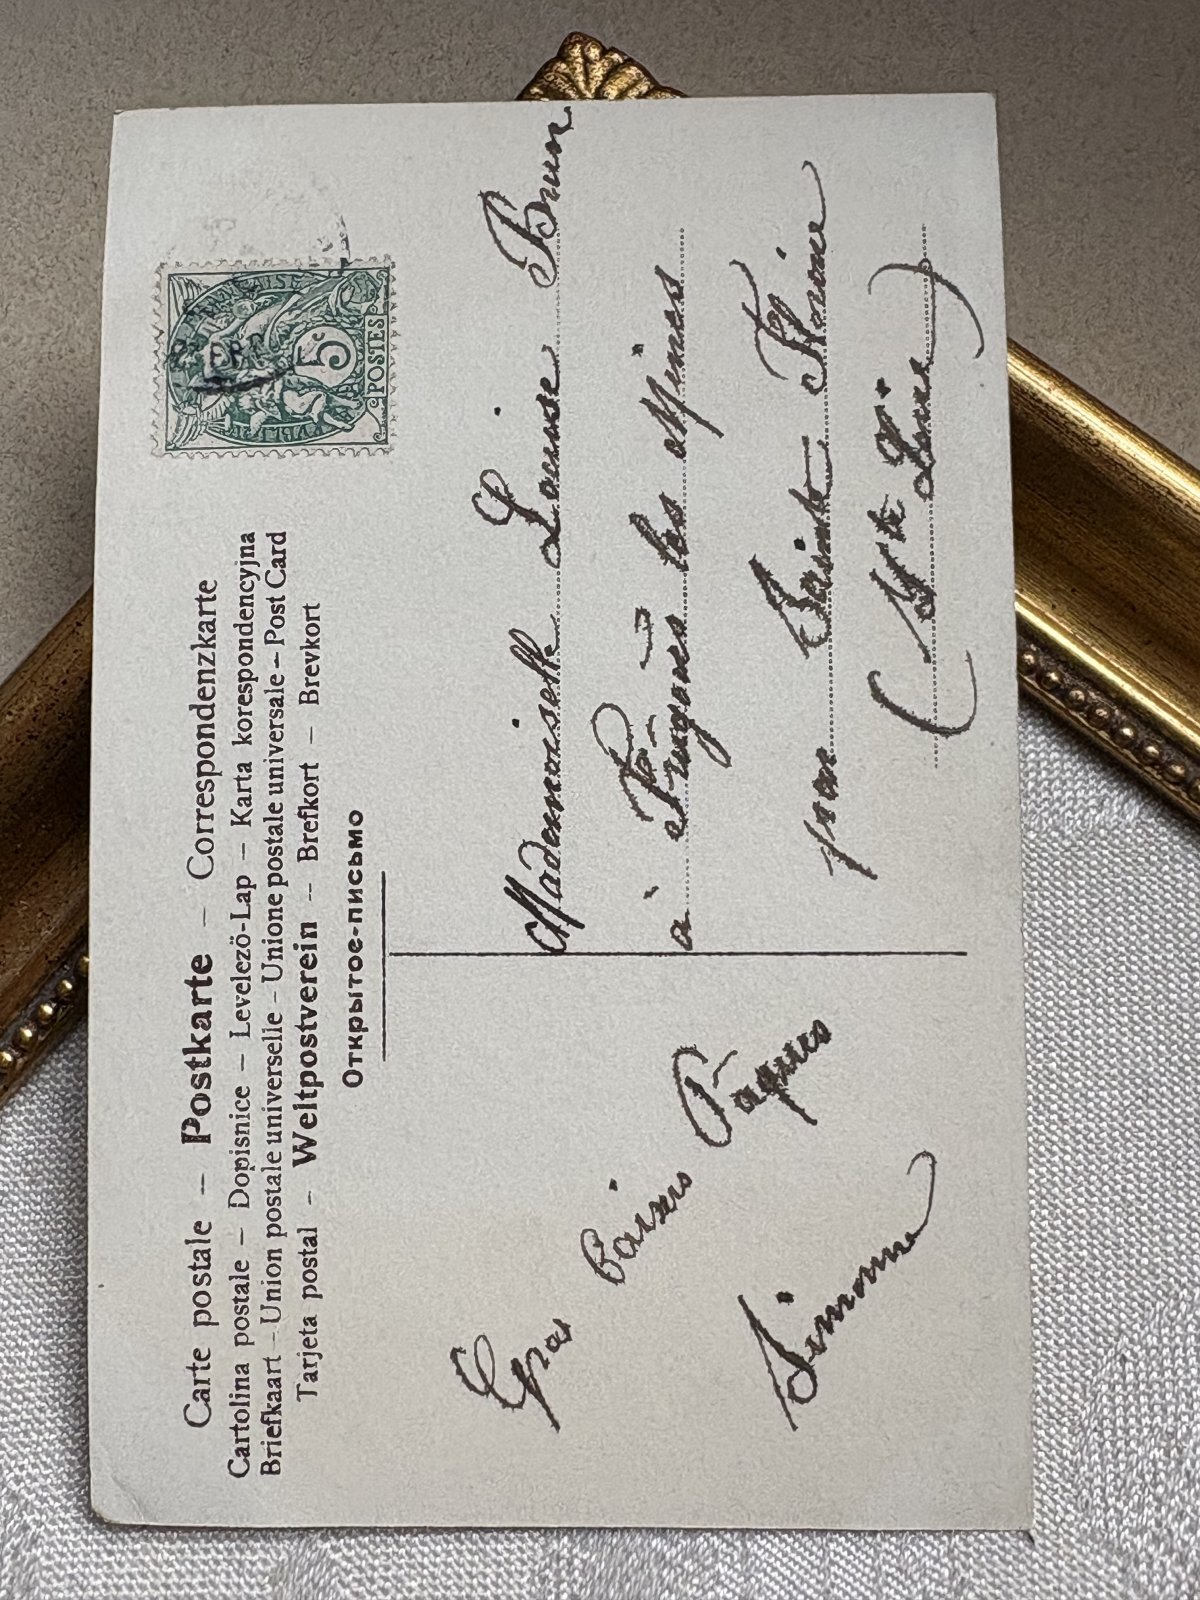 Carte postale – Postkarte – Correspondenzkarte
Cartolina postale – Dopisnice – Levelezö-Lap – Karta korespondencyjna
Briefkaart – Union postale universelle – Unione postale universale – Post Card
Tarjeta postal – Weltpostverein – Brefkort – Brevkort
Открытое-письмо
5c
POSTES
Gros baisers
Pâques
Simone
Mademoiselle Louise Brun
à les Mines
par Saint Florine
(Hte Loire)